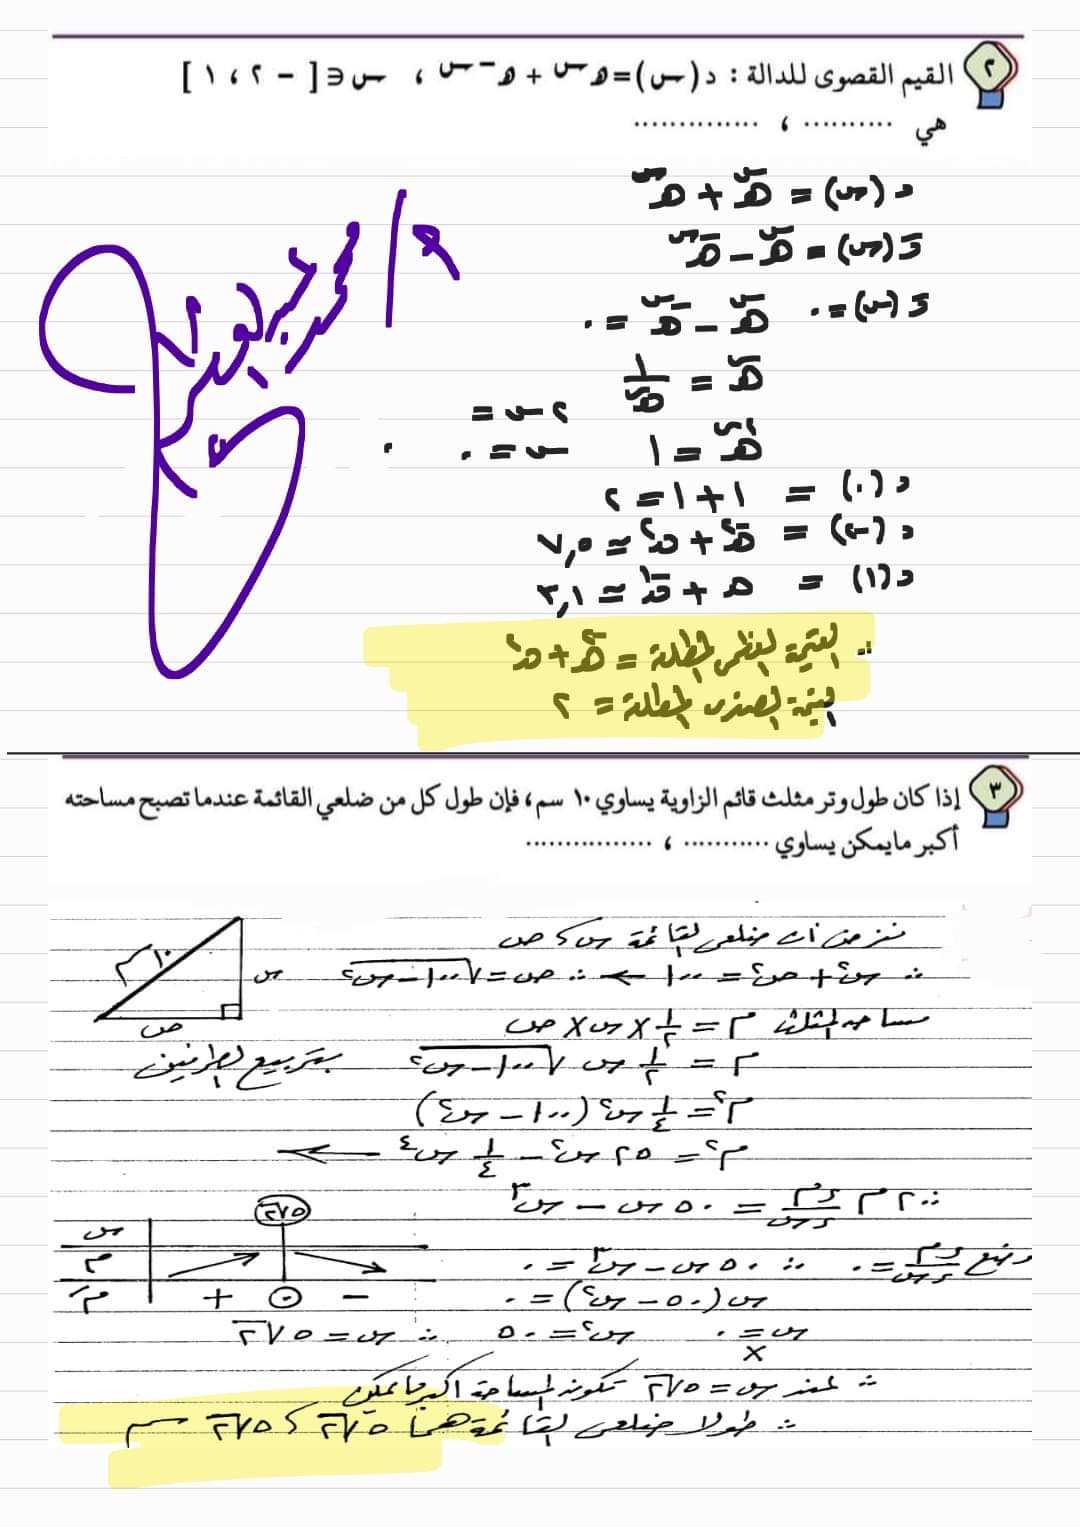 ٢ القيم القصوى للدالة : د(س) = هـ^س + هـ^-س ، س ∈ [ -٢ ، ١ ]
هي .......... ، ..............
د(س) = هـ^س + هـ^-س
دَ(س) = هـ^س - هـ^-س
دَ(س) = ٠ هـ^س - هـ^-س = ٠
هـ^س = ١/هـ^س
هـ^٢س = ١ ٢س = ٠
س = ٠
د(٠) = ١ + ١ = ٢
د(-٢) = هـ^-٢ + هـ^٢ ≃ ٧,٥
د(١) = هـ + هـ^-١ ≃ ٣,١
∴ القيمة العظمى المطلقة = هـ^-٢ + هـ^٢
القيمة الصغرى المطلقة = ٢
أ/
٣ إذا كان طول وتر مثلث قائم الزاوية يساوي ١٠ سم، فإن طول كل من ضلعي القائمة عندما تصبح مساحته
أكبر مايمكن يساوي ........... ، ................
نفرض أن ضلعي القائمة س ، ص
∴ س٢ + ص٢ = ١٠٠ ← ∴ ص = √(١٠٠ - س٢)
١٠ سم
س
ص
مساحة المثلث م = ١/٢ × س × ص
م = ١/٢ س √(١٠٠ - س٢) بتربيع الطرفين
م٢ = ١/٤ س٢ (١٠٠ - س٢)
م٢ = ٢٥ س٢ - ١/٤ س٤ ←
∴ ٢ م ءم/ءس = ٥٠ س - س٣
وضع ءم/ءس = ٠ ∴ ٥٠ س - س٣ = ٠
س (٥٠ - س٢) = ٠
س = ٠ س٢ = ٥٠ ∴ س = ٥√٢
×
س ٥√٢
م
مَ + ٠ -
∴ عند س = ٥√٢ تكون المساحة أكبر ما يمكن
∴ طولا ضلعي القائمة هما ٥√٢ ، ٥√٢ سم